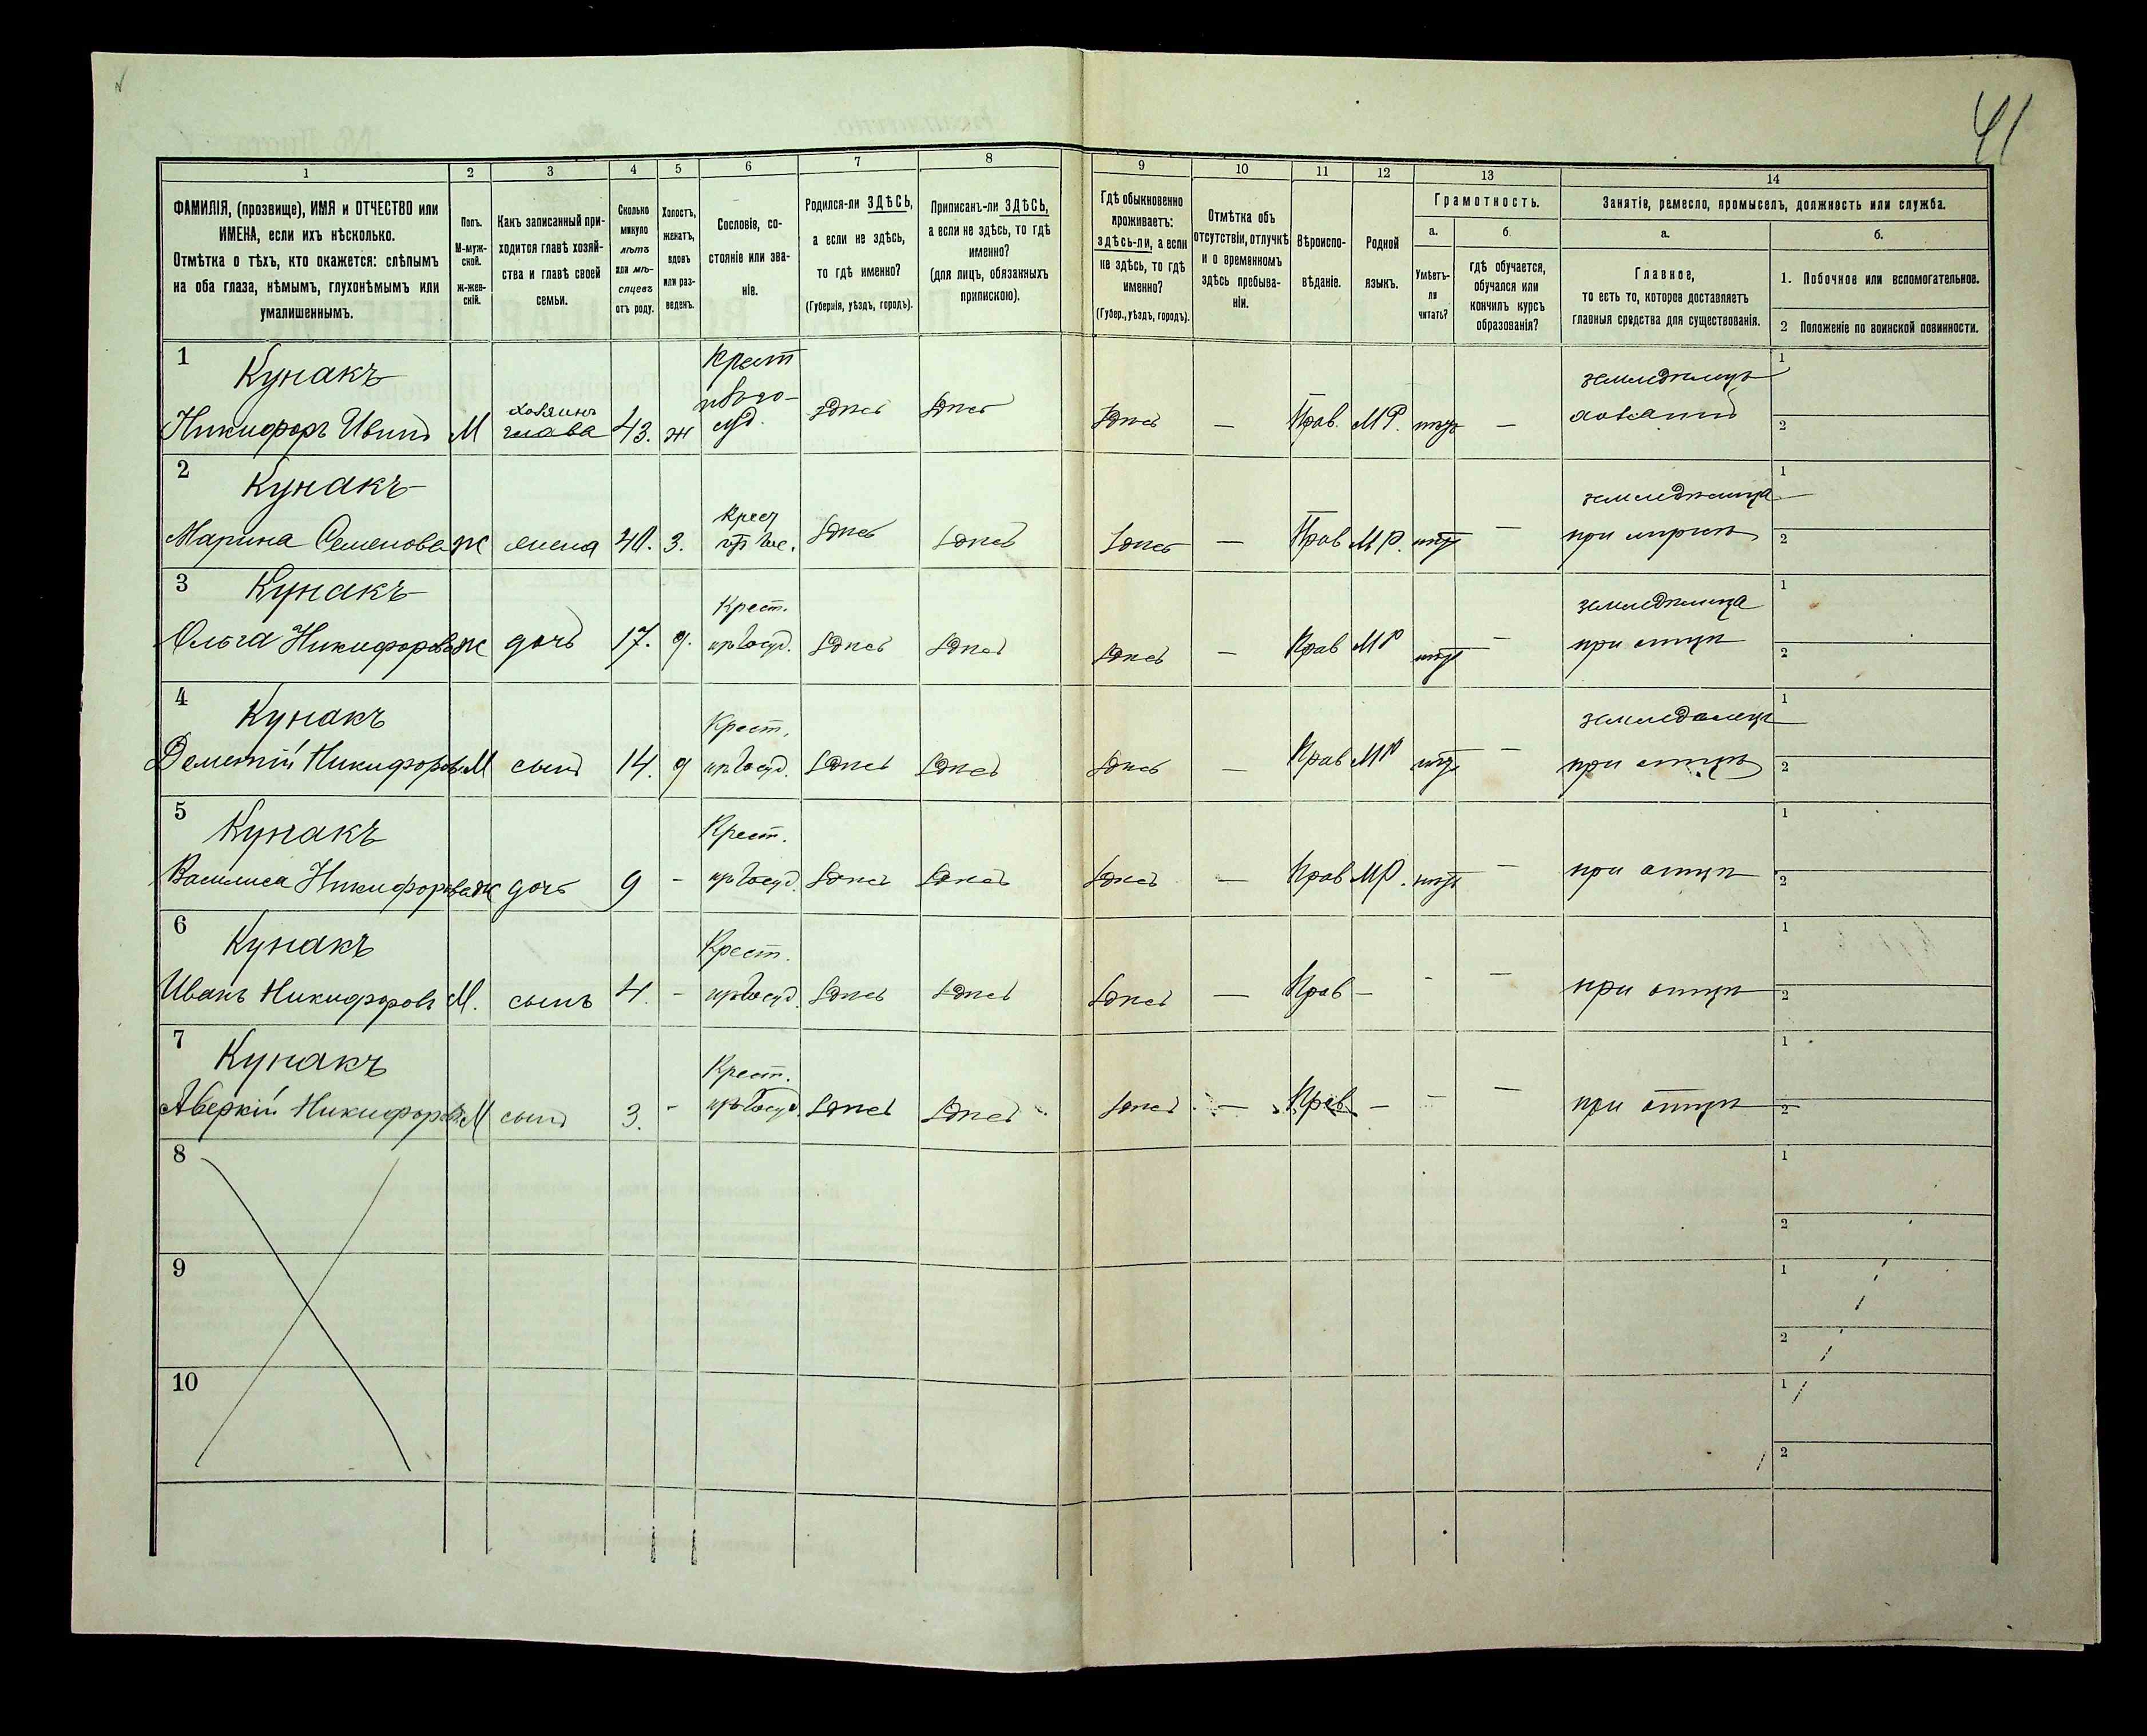 41
1 2 3 4 5 6 7 8 9 10 11 12 13 14
ФАМИЛІЯ, (прозвище), ИМЯ и ОТЧЕСТВО или
ИМЕНА, если ихъ нѣсколько.
Отмѣтка о тѣхъ, кто окажется: слѣпымъ
на оба глаза, нѣмымъ, глухонѣмымъ или
умалишеннымъ.
Полъ.
М-муж-
ской.
Ж-жен-
скій.
Какъ записанный при-
ходится главѣ хозяй-
ства и главѣ своей
семьи.
Сколько
минуло
лѣтъ
или мѣ-
сяцевъ
отъ роду.
Холостъ,
женатъ,
вдовъ
или раз-
веденъ.
Сословіе, со-
стояніе или зва-
ніе.
Родился-ли ЗДѢСЬ,
а если не здѣсь,
то гдѣ именно?
(Губернія, уѣздъ, городъ).
Приписанъ-ли ЗДѢСЬ,
а если не здѣсь, то гдѣ
именно?
(для лицъ, обязанныхъ
припискою).
Гдѣ обыкновенно
проживаетъ:
здѣсь-ли, а если
не здѣсь, то гдѣ
именно?
(Губер., уѣздъ, городъ).
Отмѣтка объ
отсутствіи, отлучкѣ
и о временномъ
здѣсь пребыва-
ніи.
Вѣроиспо-
вѣданіе.
Родной
языкъ.
Грамотность.
а.
Умѣетъ-
ли
читать?
б.
гдѣ обучается,
обучался или
кончилъ курсъ
образованія?
Занятіе, ремесло, промыселъ, должность или служба.
а.
Главное,
то есть то, которое доставляетъ
главныя средства для существованія.
б.
1. Побочное или вспомогательное.
2 Положеніе по воинской повинности.
1 Кунакъ Крест земледѣлецъ 1
хозяинъ
Никифоръ Ивановъ М глава 43. ж здѣсь здѣсь здѣсь — Прав. МР. нѣтъ — хозяинъ 2
2 Кунакъ Крест земледѣлица 1
Марина Семенова ж жена 40. з. здѣсь здѣсь здѣсь — Прав МР. нѣтъ — при мужѣ 2
3 Кунакъ Крест. земледѣлица 1
Ольга Никифорова ж дочь 17. д. из госуд. здѣсь здѣсь здѣсь — Прав МР нѣтъ — при отцѣ 2
4 Кунакъ Крест. земледелецъ 1
Дементій Никифоровъ М сынъ 14. из госуд. здѣсь здѣсь здѣсь — Прав МР нѣтъ — при отцѣ 2
5 Кунакъ Крест. 1
Василиса Никифорова ж дочь 9 - из госуд. здѣсь здѣсь здѣсь — Прав МР. нѣтъ — при отцѣ 2
6 Кунакъ Крест. 1
Иванъ Никифоровъ М. сынъ 4. - из госуд. здѣсь здѣсь здѣсь — Прав — - — при отцѣ 2
7 Кунакъ Крест. 1
Аверкій Никифоровъ М сынъ 3. - из госуд. здѣсь здѣсь здѣсь — Прав — — — при отцѣ 2
8 1
2
9 1
2
10 1
2